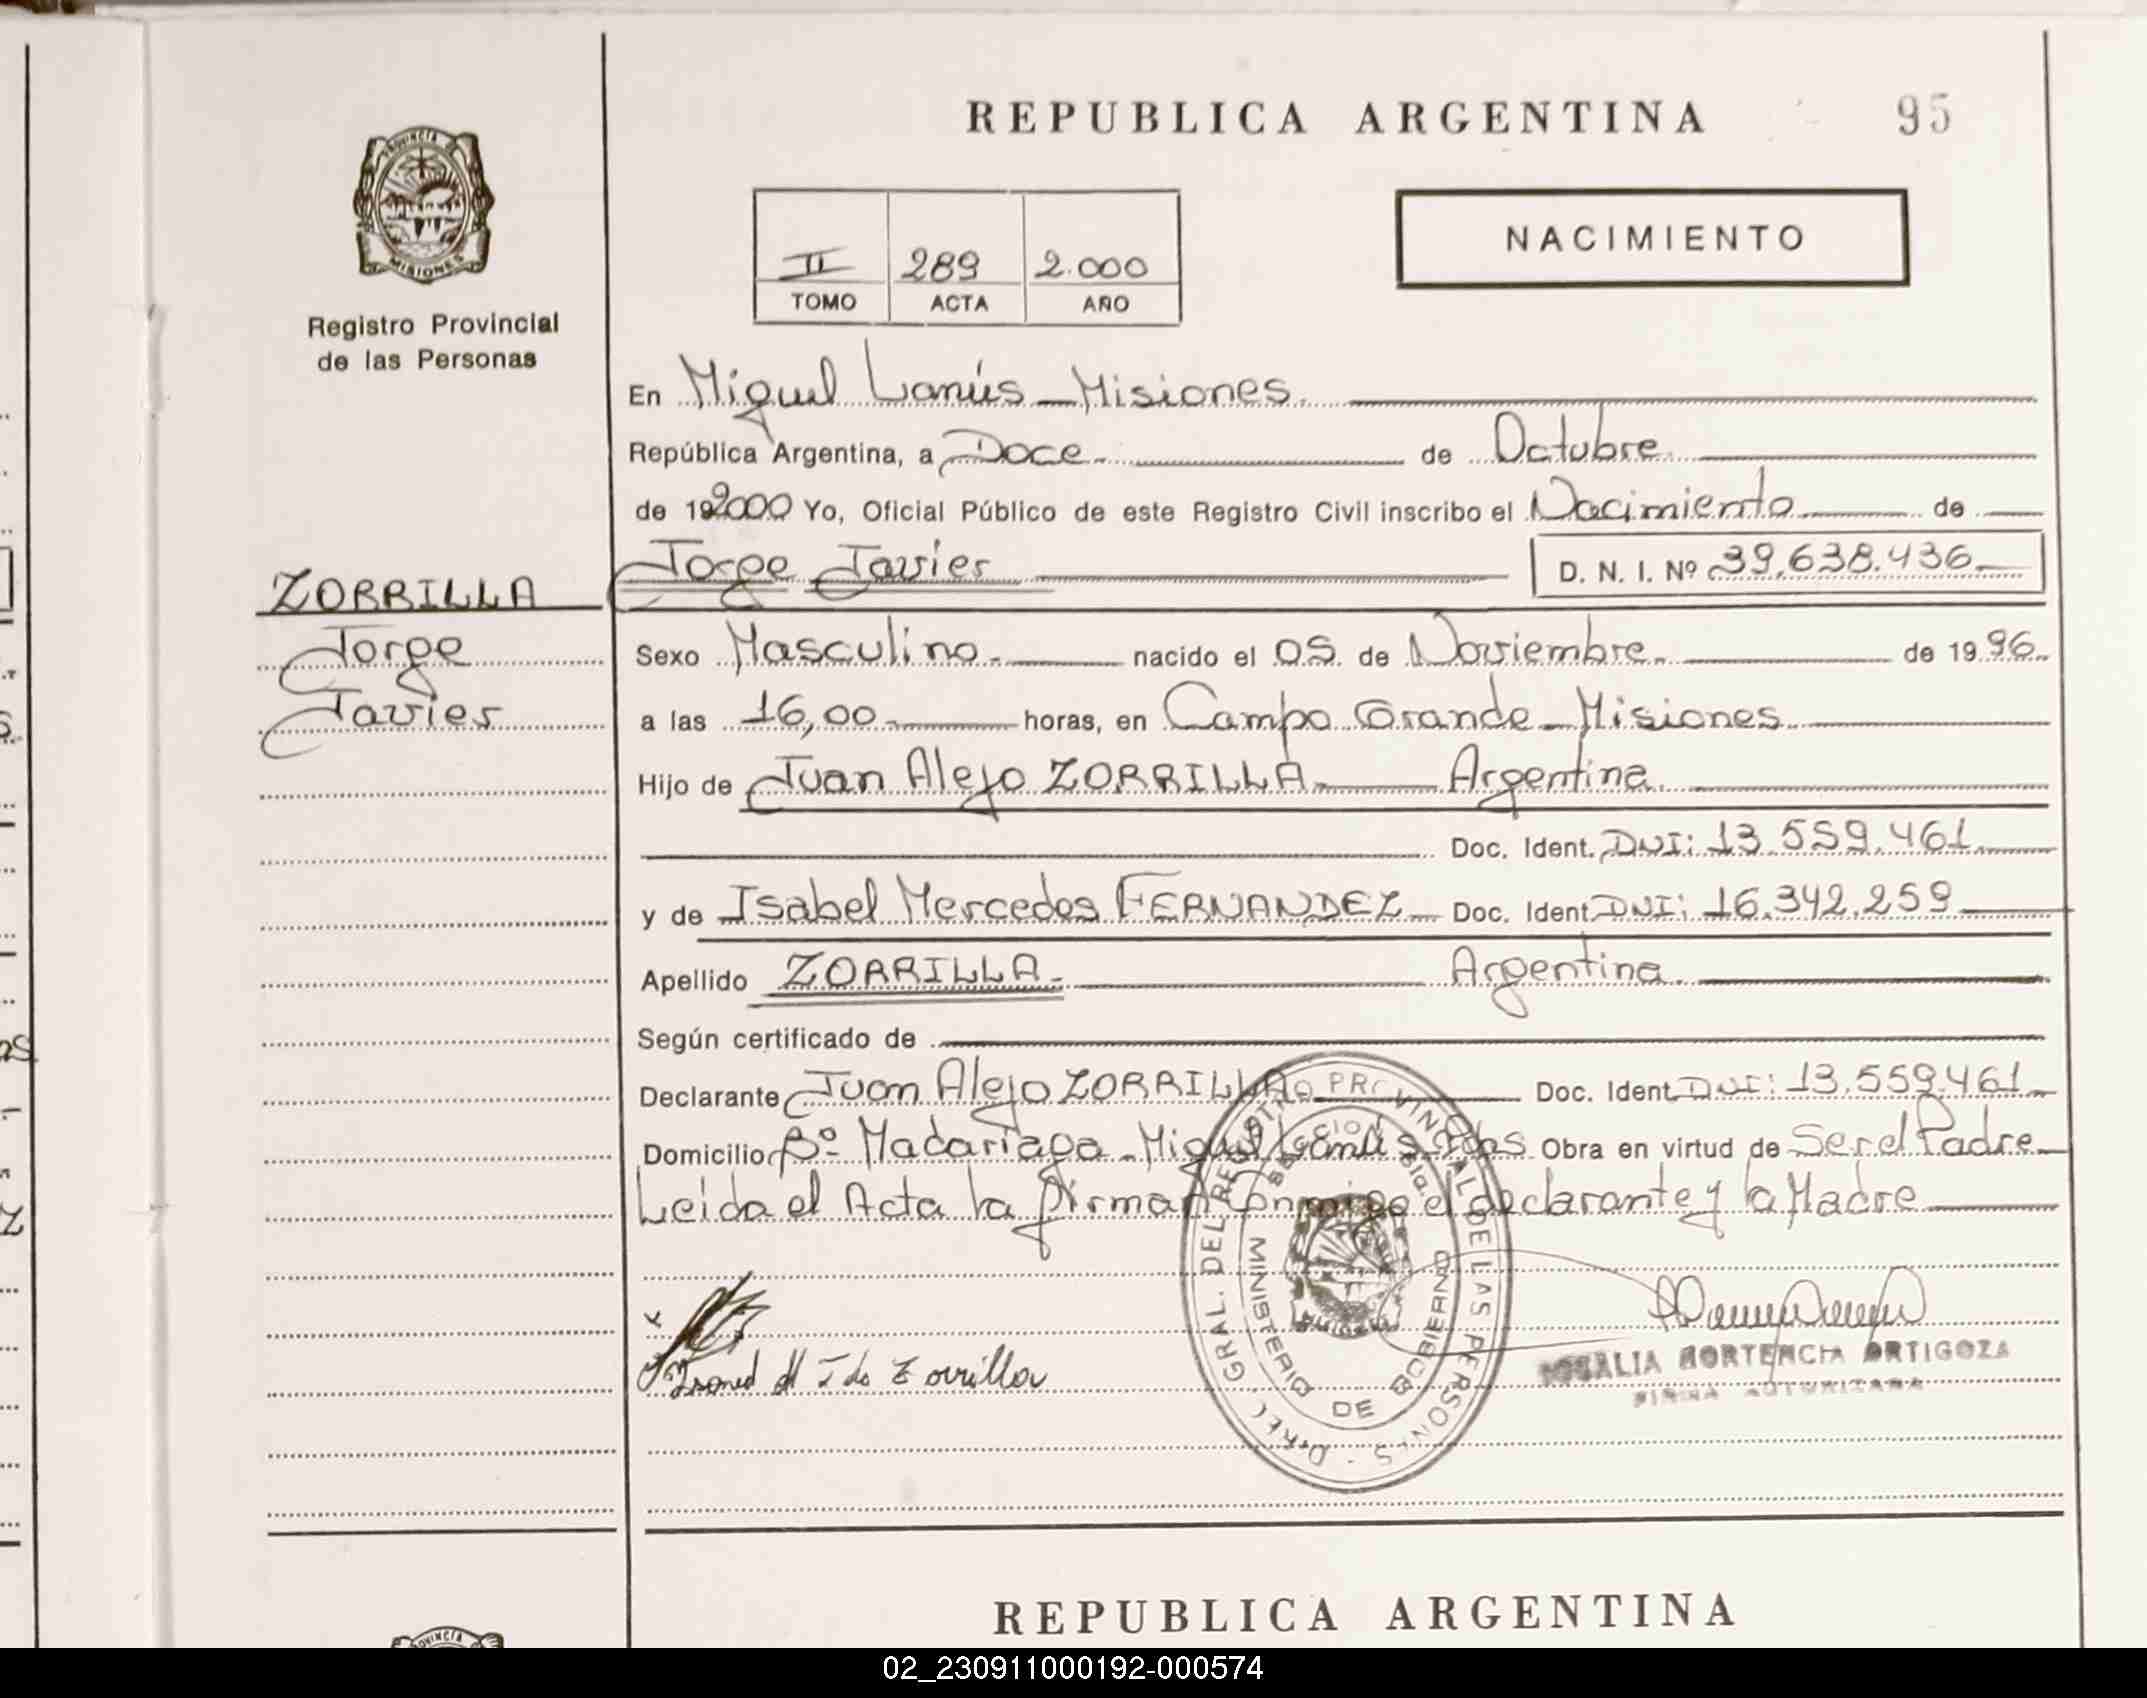 REPUBLICA ARGENTINA 95
PROVINCIA DE
MISIONES
Registro Provincial
de las Personas
II 289 2.000
TOMO ACTA AÑO
NACIMIENTO
En Miguel Lanús - Misiones.
República Argentina, a Doce. de Octubre.
de 192000 Yo, Oficial Público de este Registro Civil inscribo el Nacimiento de
Jorge Javier D. N. I. Nº 39.638.436
ZORRILLA
Jorge
Javier
Sexo Masculino. nacido el 05. de Noviembre. de 1996.
a las 16,00 horas, en Campo Grande - Misiones.
Hijo de Juan Alejo ZORRILLA Argentina.
Doc. Ident. DNI: 13.559.461
y de Isabel Mercedes FERNANDEZ Doc. Ident DNI: 16.342.259
Apellido ZORRILLA. Argentina.
Según certificado de
Declarante Juan Alejo ZORRILLA Doc. Ident DNI: 13.559.461
Domicilio Bº Madariaga - Miguel Lanús - Mns Obra en virtud de Ser el Padre
Leida el Acta la firman conmigo el declarante y la Madre
DIREC. GRAL. DEL REGISTRO PROVINCIAL DE LAS PERSONAS
MINISTERIO DE GOBIERNO
de Zorrilla
ROSALIA HORTENCIA ORTIGOZA
FIRMA AUTORIZADA
REPUBLICA ARGENTINA
PROVINCIA
02_230911000192-000574